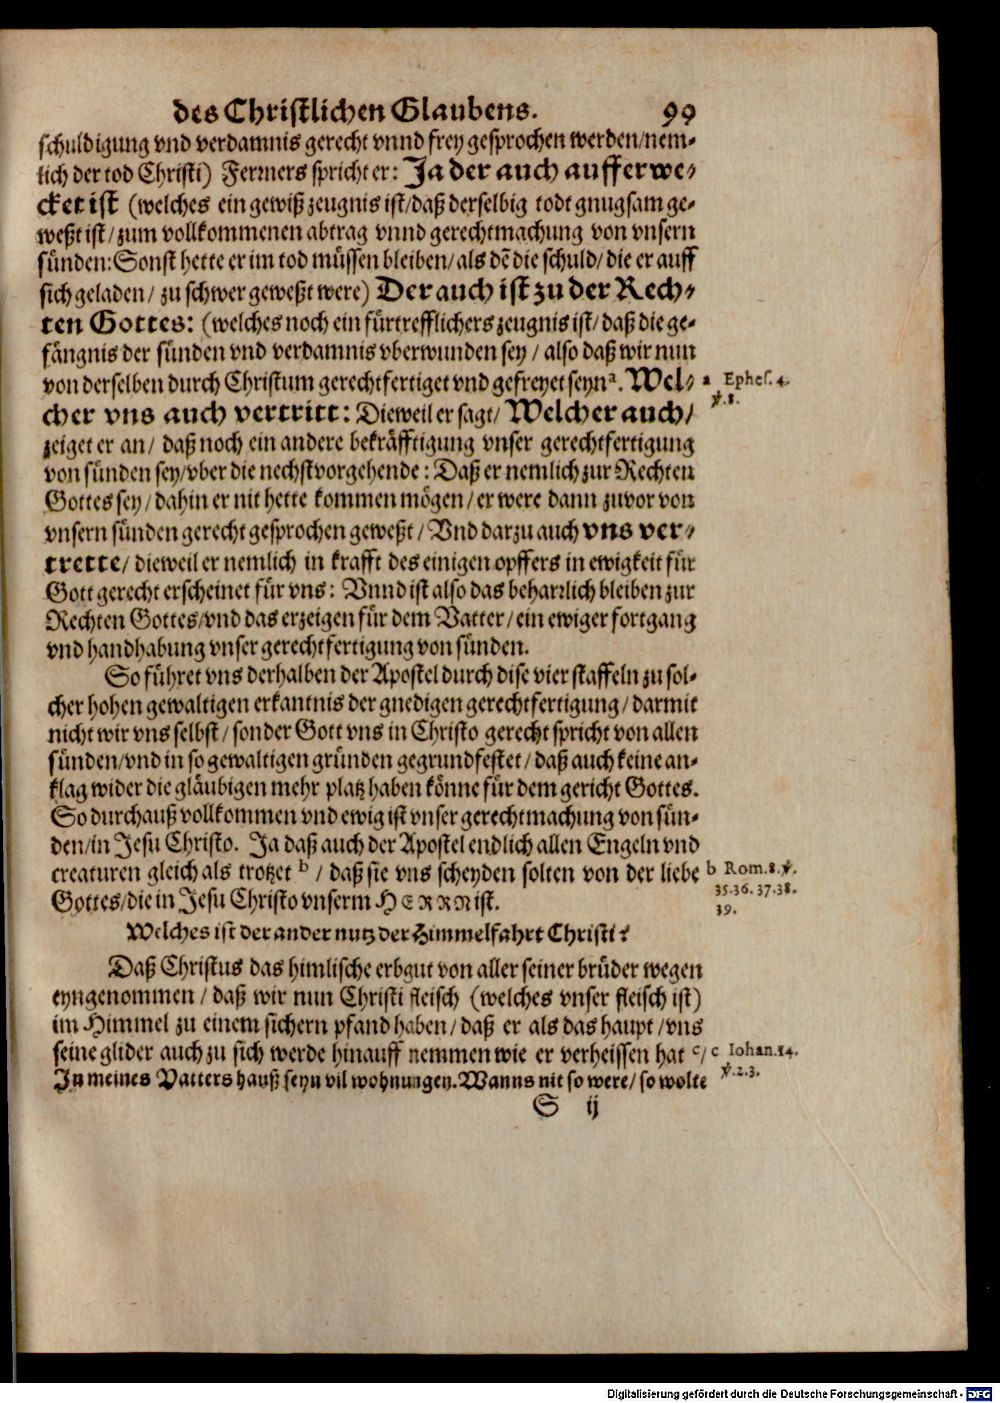 des Christlichen Glaubens. 99
schuldigung vnd verdamnis gerecht vnnd frey gesprochen werden/nem-
lich der tod Christi) Ferrners spricht er: Ja der auch aufferwe-
cket ist (welches ein gewiß zeugnis ist/daß derselbig todt gnugsam ge-
weßt ist/zum vollkommenen abtrag vnnd gerechtmachung von vnsern
sünden:Sonst hette er im tod müssen bleiben/als dẽ die schuld/die er auff
sich geladen/ zu schwer geweßt were) Der auch ist zu der Rech-
ten Gottes: (welches noch ein fürtrefflichers zeugnis ist/daß die ge-
fängnis der sünden vnd verdamnis vberwunden sey / also daß wir nun
von derselben durch Christum gerechtfertiget vnd gefreyet seynᵃ. Wel-
a Ephes. 4.
℣.8.
cher vns auch vertritt: Dieweil er sagt/ Welcher auch/
zeiget er an/ daß noch ein andere bekräfftigung vnser gerechtfertigung
von sünden sey/vber die nechstvorgehende: Daß er nemlich zur Rechten
Gottes sey/dahin er nit hette kommen mögen/er were dann zuvor von
vnsern sünden gerecht gesprochen geweßt/ Vnd darzu auch vns ver-
trette/ dieweil er nemlich in krafft des einigen opffers in ewigkeit für
Gott gerecht erscheinet für vns: Vnnd ist also das beharrlich bleiben zur
Rechten Gottes/vnd das erzeigen für dem Vatter/ein ewiger fortgang
vnd handhabung vnser gerechtfertigung von sünden.
So führet vns derhalben der Apostel durch dise vier staffeln zu sol-
cher hohen gewaltigen erkantnis der gnedigen gerechtfertigung/darmit
nicht wir vns selbst/sonder Gott vns in Christo gerecht spricht von allen
sünden/vnd in so gewaltigen gründen gegrundfestet/daß auch keine an-
klag wider die gläubigen mehr platz haben könne für dem gericht Gottes.
So durchauß vollkommen vnd ewig ist vnser gerechtmachung von sün-
den/in Jesu Christo. Ja daß auch der Apostel endlich allen Engeln vnd
creaturen gleich als trotzet ᵇ / daß sie vns scheyden solten von der liebe
b Rom.8.℣.
35.36.37.38.
39.
Gottes/die in Jesu Christo vnserm HERRN ist.
Welches ist der ander nutz der Himmelfahrt Christi?
Daß Christus das himlische erbgut von aller seiner brüder wegen
eyngenommen / daß wir nun Christi fleisch (welches vnser fleisch ist)
im Himmel zu einem sichern pfand haben/daß er als das haupt/vns
seine glider auch zu sich werde hinauff nemmen wie er verheissen hat ᶜ/
c Iohan.14.
℣.2.3.
In meines Vatters hauß seyn vil wohnungen. Wanns nit so were/ so wolte
S ij
Digitalisierung gefördert durch die Deutsche Forschungsgemeinschaft - DFG